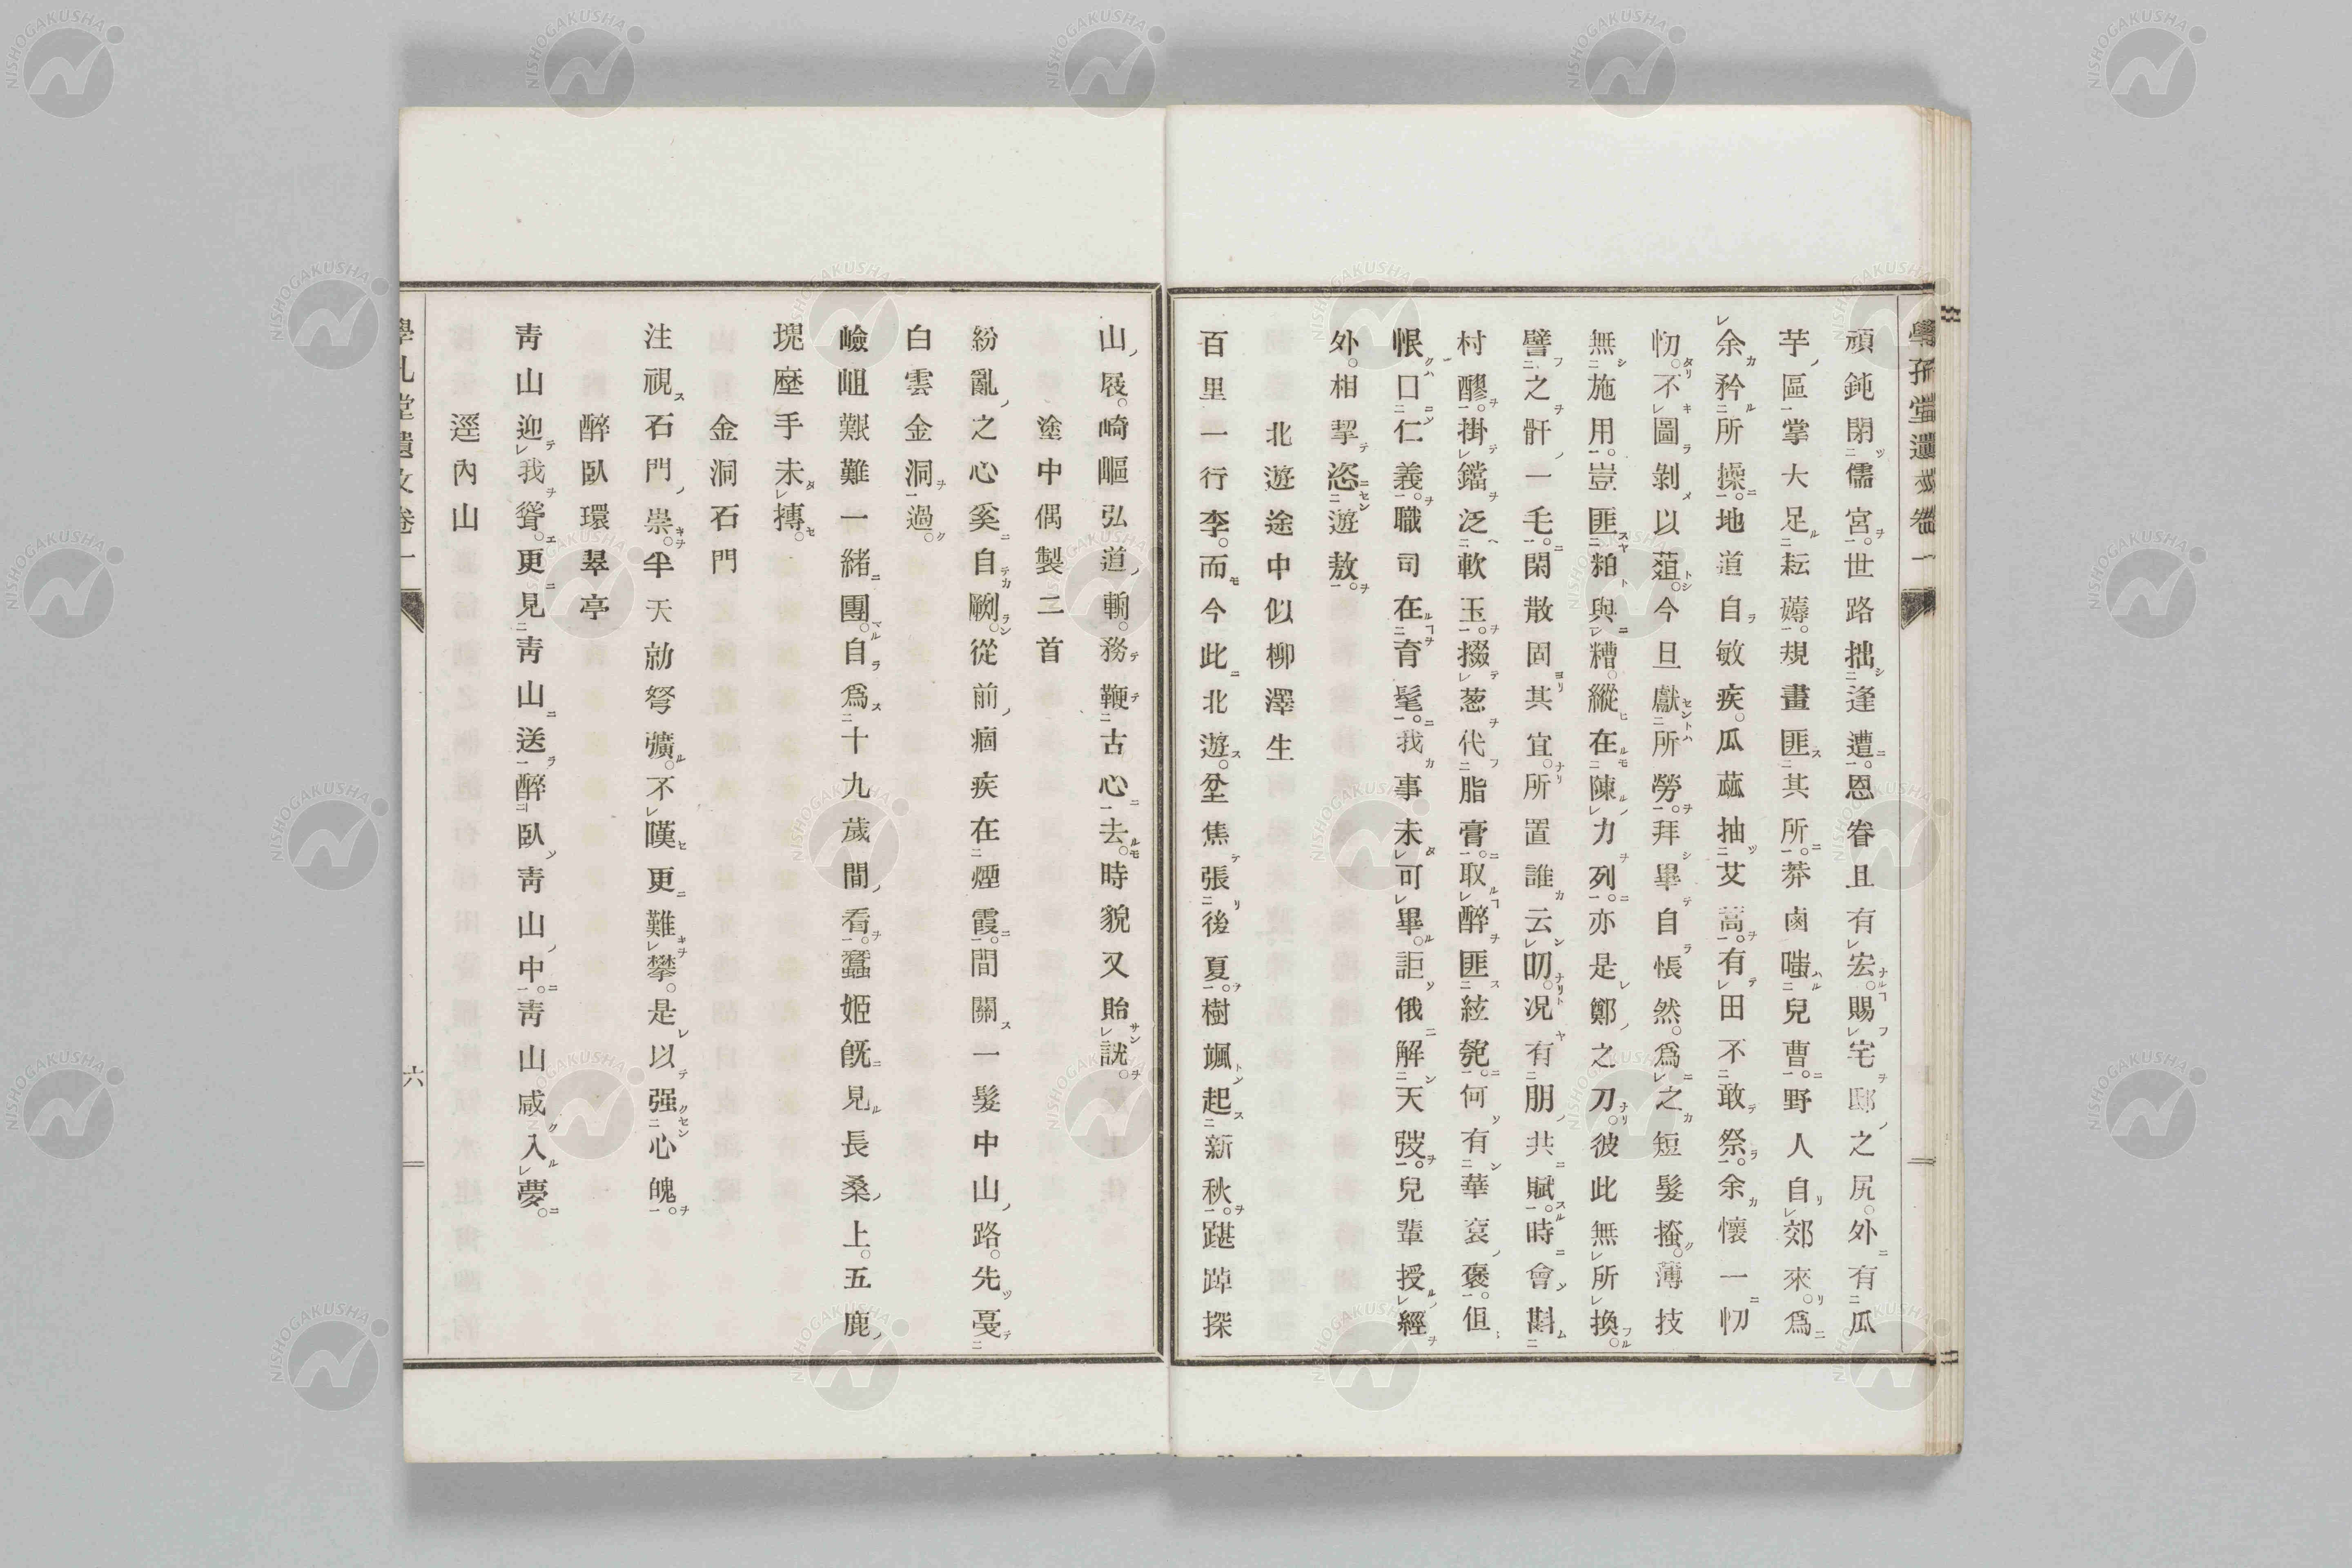 學孔堂遺文卷一
頑鈍閑儒宮。世路拙逢遭。恩眷且有宏。賜宅邸之尻。外有瓜
芋區掌大足耘薅。規畫匪其所。莽鹵嗤兒曹。野人自郊來。爲
余矜所操。地道自敏疾。瓜蓏抽艾蒿。有田不敢祭。余懷一忉
忉。不圖剝以菹。今旦獻所勞。拜畢自悵然。爲之短髮搔。薄技
無施用。豈匪粕與糟。縱在陳力列。亦是鄭之刀。彼此無所換。
譬之骭一毛。閑散固其宜。所置誰云叨。況有朋共賦。時會斟
村醪。掛鐺泛軟玉。掇葱代脂膏。取醉匪絃匏。何有華袞褒。但
恨口仁義。職司在育髦。我事未可畢。詎俄解天弢。兒輩授經
外。相挈恣遊敖。
北遊途中似柳澤生
百里一行李。而今此北遊。坌焦張後夏。樹颯起新秋。踸踔探
山屐。崎嶇弘道輈。務鞭古心去。時貌又貽訧。
塗中偶製二首
紛亂之心奚自劂。從前痼疾在煙霞。間關一髮中山路。先戞
白雲金洞過。
嶮岨艱難一緒團。自爲十九歲間看。蠶姬旣見長桑上。五鹿
塊壓手未摶。
金洞石門
注視石門崇。半天勍弩彍。不嘆更難攀。是以强心魄。
醉臥環翠亭
靑山迎我聳。更見靑山送。醉臥靑山中。靑山咸入夢。
逕內山
學孔堂遺文卷一
六
NISHOGAKUSHA